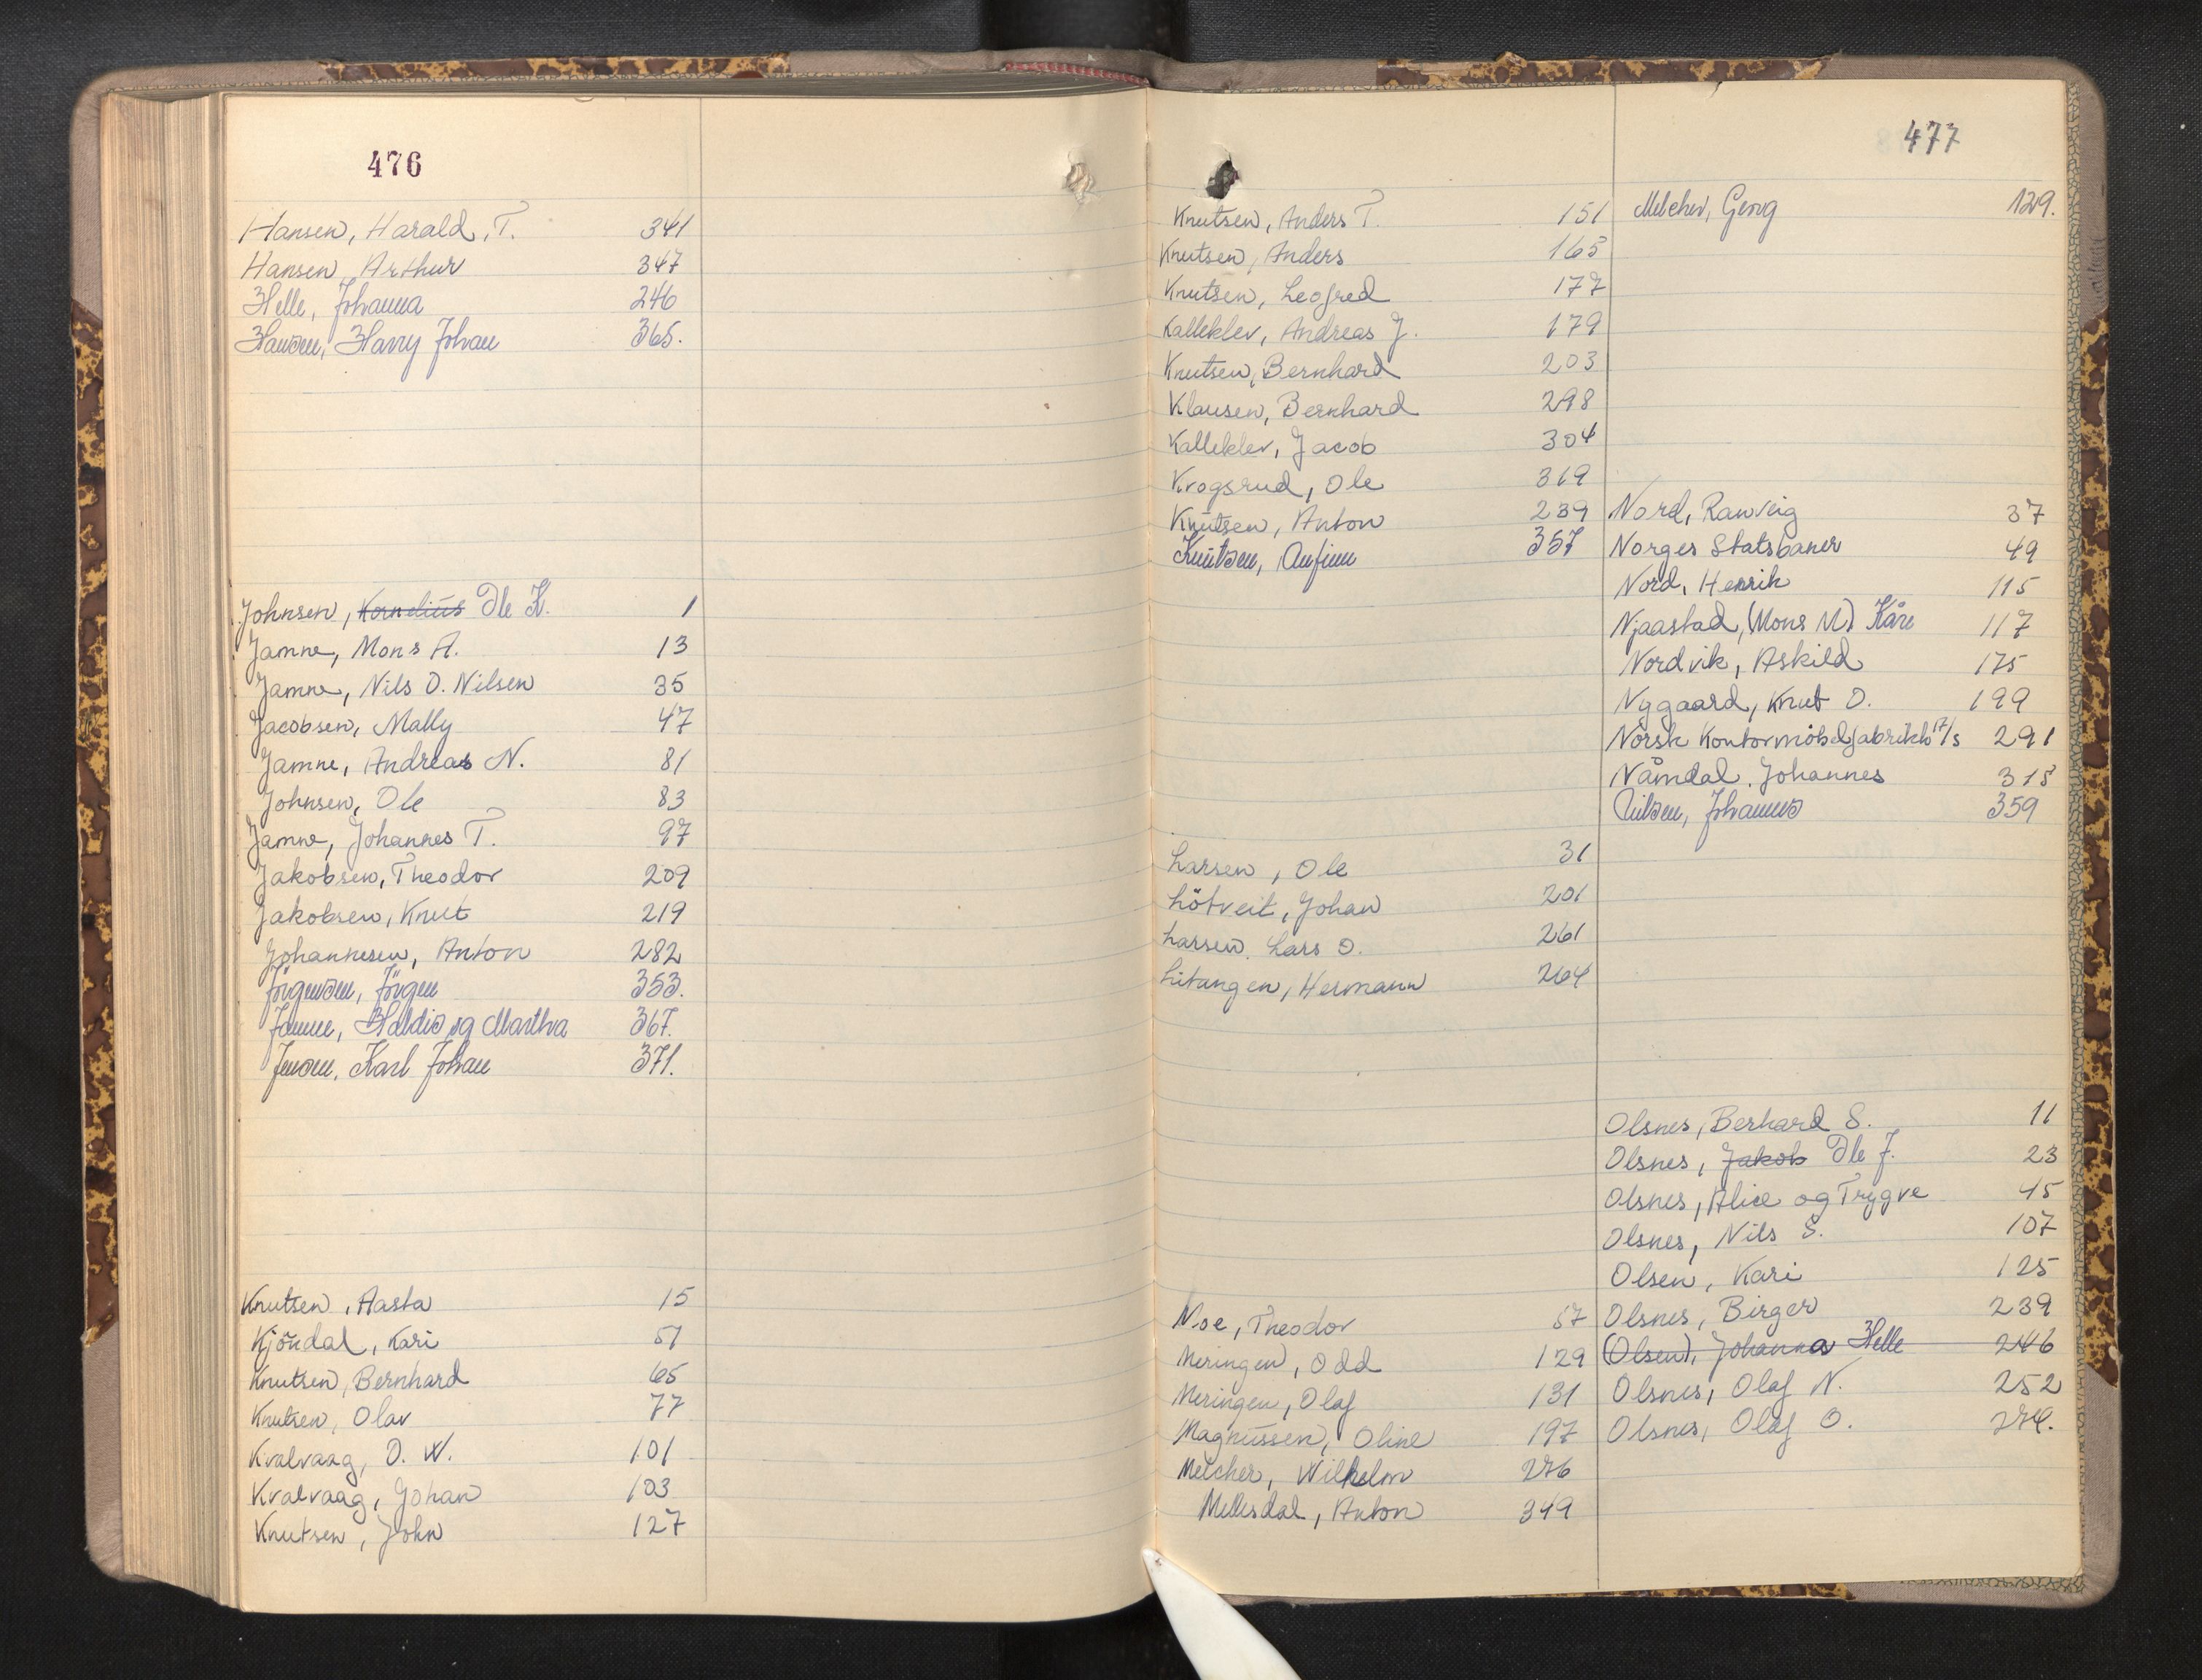 476
Hansen, Harald, T. 341
Hansen, Arthur 347
Helle, Johanna 246
Hansen, Harry Johan 365.
Johnsen, Kornelius Ole K. 1
Jamne, Mons A. 13
Jamne, Nils O. Nilsen 35
Jacobsen, Mally 47
Jamne, Andreas N. 81
Johnsen, Ole 83
Jamne, Johannes T. 97
Jakobsen, Theodor 209
Jakobsen, Knut 219
Johannesen, Anton 282
Jörgensen, Jörgen 353.
Jamne, Haldis og Martha 367.
Jensen, Karl Johan 371.
Knutsen, Aasta 15
Kjöndal, Kari 51
Knutsen, Bernhard 65
Knutsen, Olav 77
Kvalvaag, O. W. 101
Kvalvaag, Johan 103
Knutsen, John 127
477
Knutsen, Anders T. 151
Knutsen, Anders 165
Knutsen, Leofred 177
Kalleklev, Andreas J. 179
Knutsen, Bernhard 203
Klausen, Bernhard 298
Kalleklev, Jacob 304
Krogsrud, Ole 319
Knutsen, Anton 239
Knutsen, Anfinn 357
Larsen, Ole 31
Lötveit, Johan 201
Larsen, Lars O. 261
Litangen, Hermann 264
Moe, Theodor 57
Meringen, Odd 129
Meringen, Olaf 131
Magnussen, Oline 197
Melcher, Wilhelm 276
Mellesdal, Anton 349
Melcher, Georg 129.
Nord, Ranveig 37
Norges Statsbaner 49
Nord, Henrik 115
Njaastad, (Mons M) Kåre 117
Nordvik, Askild 175
Nygaard, Knut O. 199
Norsk Kontormöbelfabrikk A/s 291
Nåmdal, Johannes 315
Nilsen, Johannes 359
Olsnes, Berhard S. 11
Olsnes, Jakob Ole J. 23
Olsnes, Alice og Trygve 45
Olsnes, Nils S. 107
Olsen, Kari 125
Olsnes, Birger 239
(Olsen), Johanna Helle 246
Olsnes, Olaf N. 252
Olsnes, Olaf O. 274.